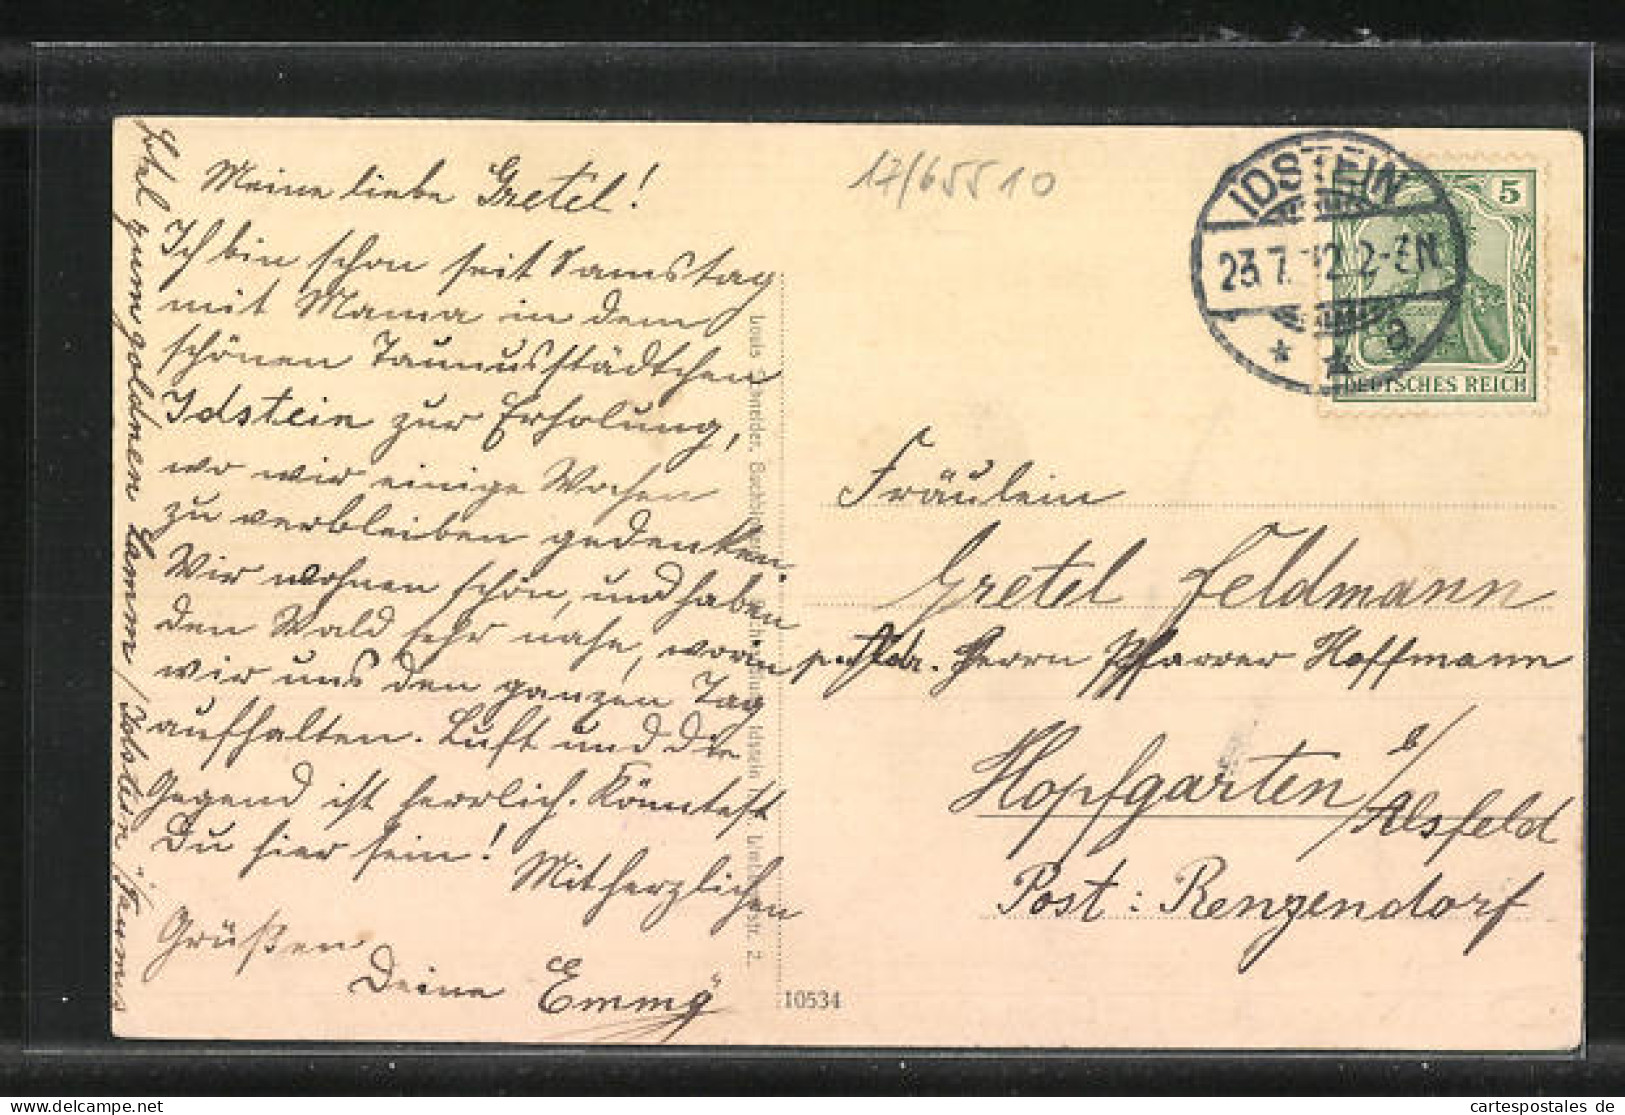 Meine liebe Gretel!
Ich bin schon seit Samstag
mit Mama in dem
schönen Taunusstädtchen
Idstein zur Erholung,
wo wir einige Wochen
zu verbleiben gedenken.
Wir wohnen schön, und haben
den Wald sehr nahe, worin
wir uns den ganzen Tag
aufhalten. Luft und die
Gegend ist herrlich. Könntest
Du hier sein! Mit herzlichen
Grüßen
Deine Emmy
zum goldnen Lamm / Idstein i/Taunus
Louis Schneider,
10534
17/65510
IDSTEIN
23.7.12 2-3N
a
5
DEUTSCHES REICH
Fräulein
Gretel Feldmann
p. Adr. Herrn Pfarrer Hoffmann
Hopfgarten b/
Alsfeld
Post: Renzendorf
cartespostales de